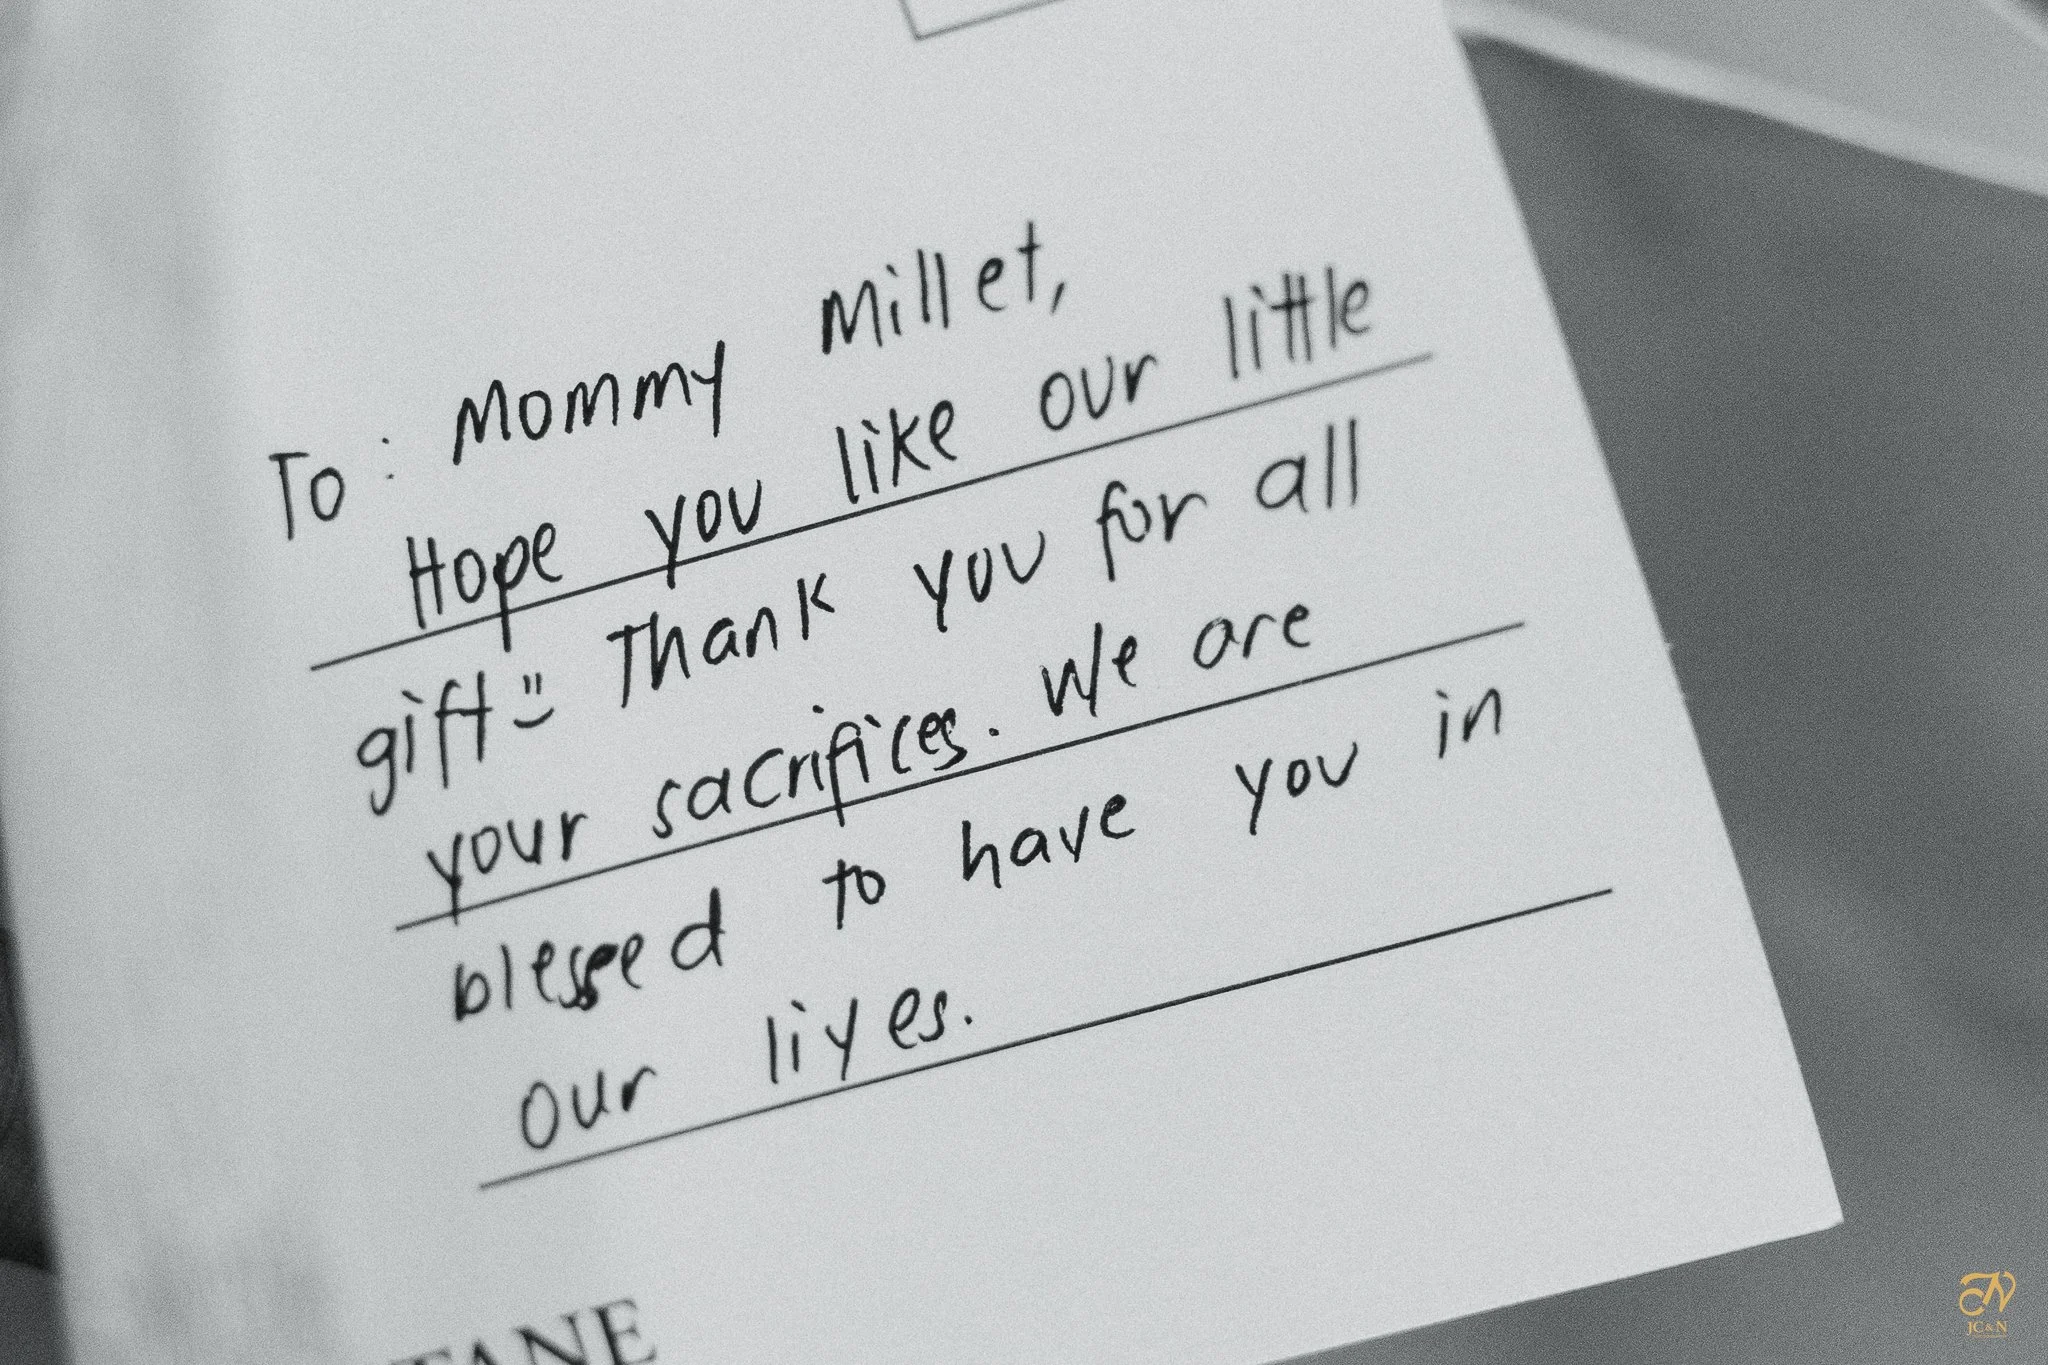 To: Mommy Millet,
Hope you like our little
gift =) Thank you for all
your sacrifices. We are
blessed to have you in
our lives.
TANE
JC&N